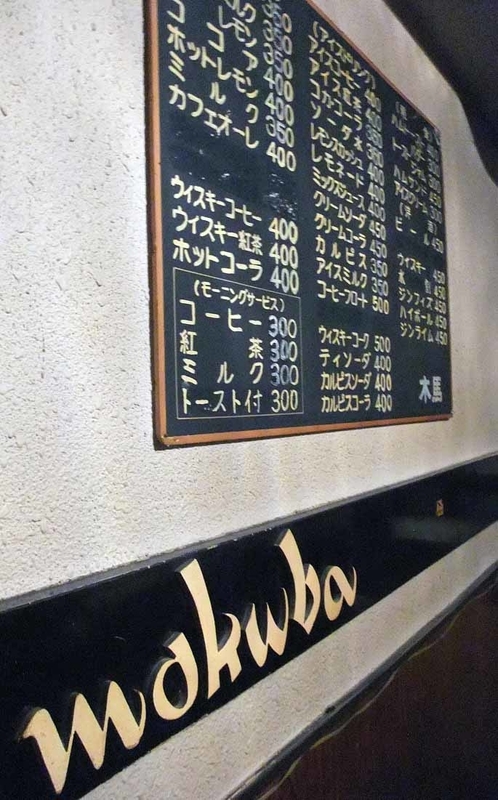 ルク 350
レモン 350
ココア 350
ホットレモン 400
ミルク 350
カフェオーレ 400
ウィスキーコーヒー 400
ウィスキー紅茶 400
ホットコーラ 400
(モーニングサービス)
コーヒー 300
紅茶 300
ミルク 300
トースト付 300
(アイスドリンク)
アイスコーヒー 400
アイス紅茶 400
コカ・コーラ 350
ソーダ水 350
レモンスカッシュ 400
レモネード 400
ミックスジュース 400
クリームソーダ 450
クリームコーラ 450
カルピス 350
アイスミルク 350
コーヒーフロート 500
ウィスキーコーク 500
ティソーダ 400
カルピスソーダ 400
カルピスコーラ 400
ハムサンド
アイスクリーム
ビール 450
ウィスキー 450
水割 450
ジンフィズ 450
ハイボール 450
ジンライム 450
木馬
mokuba